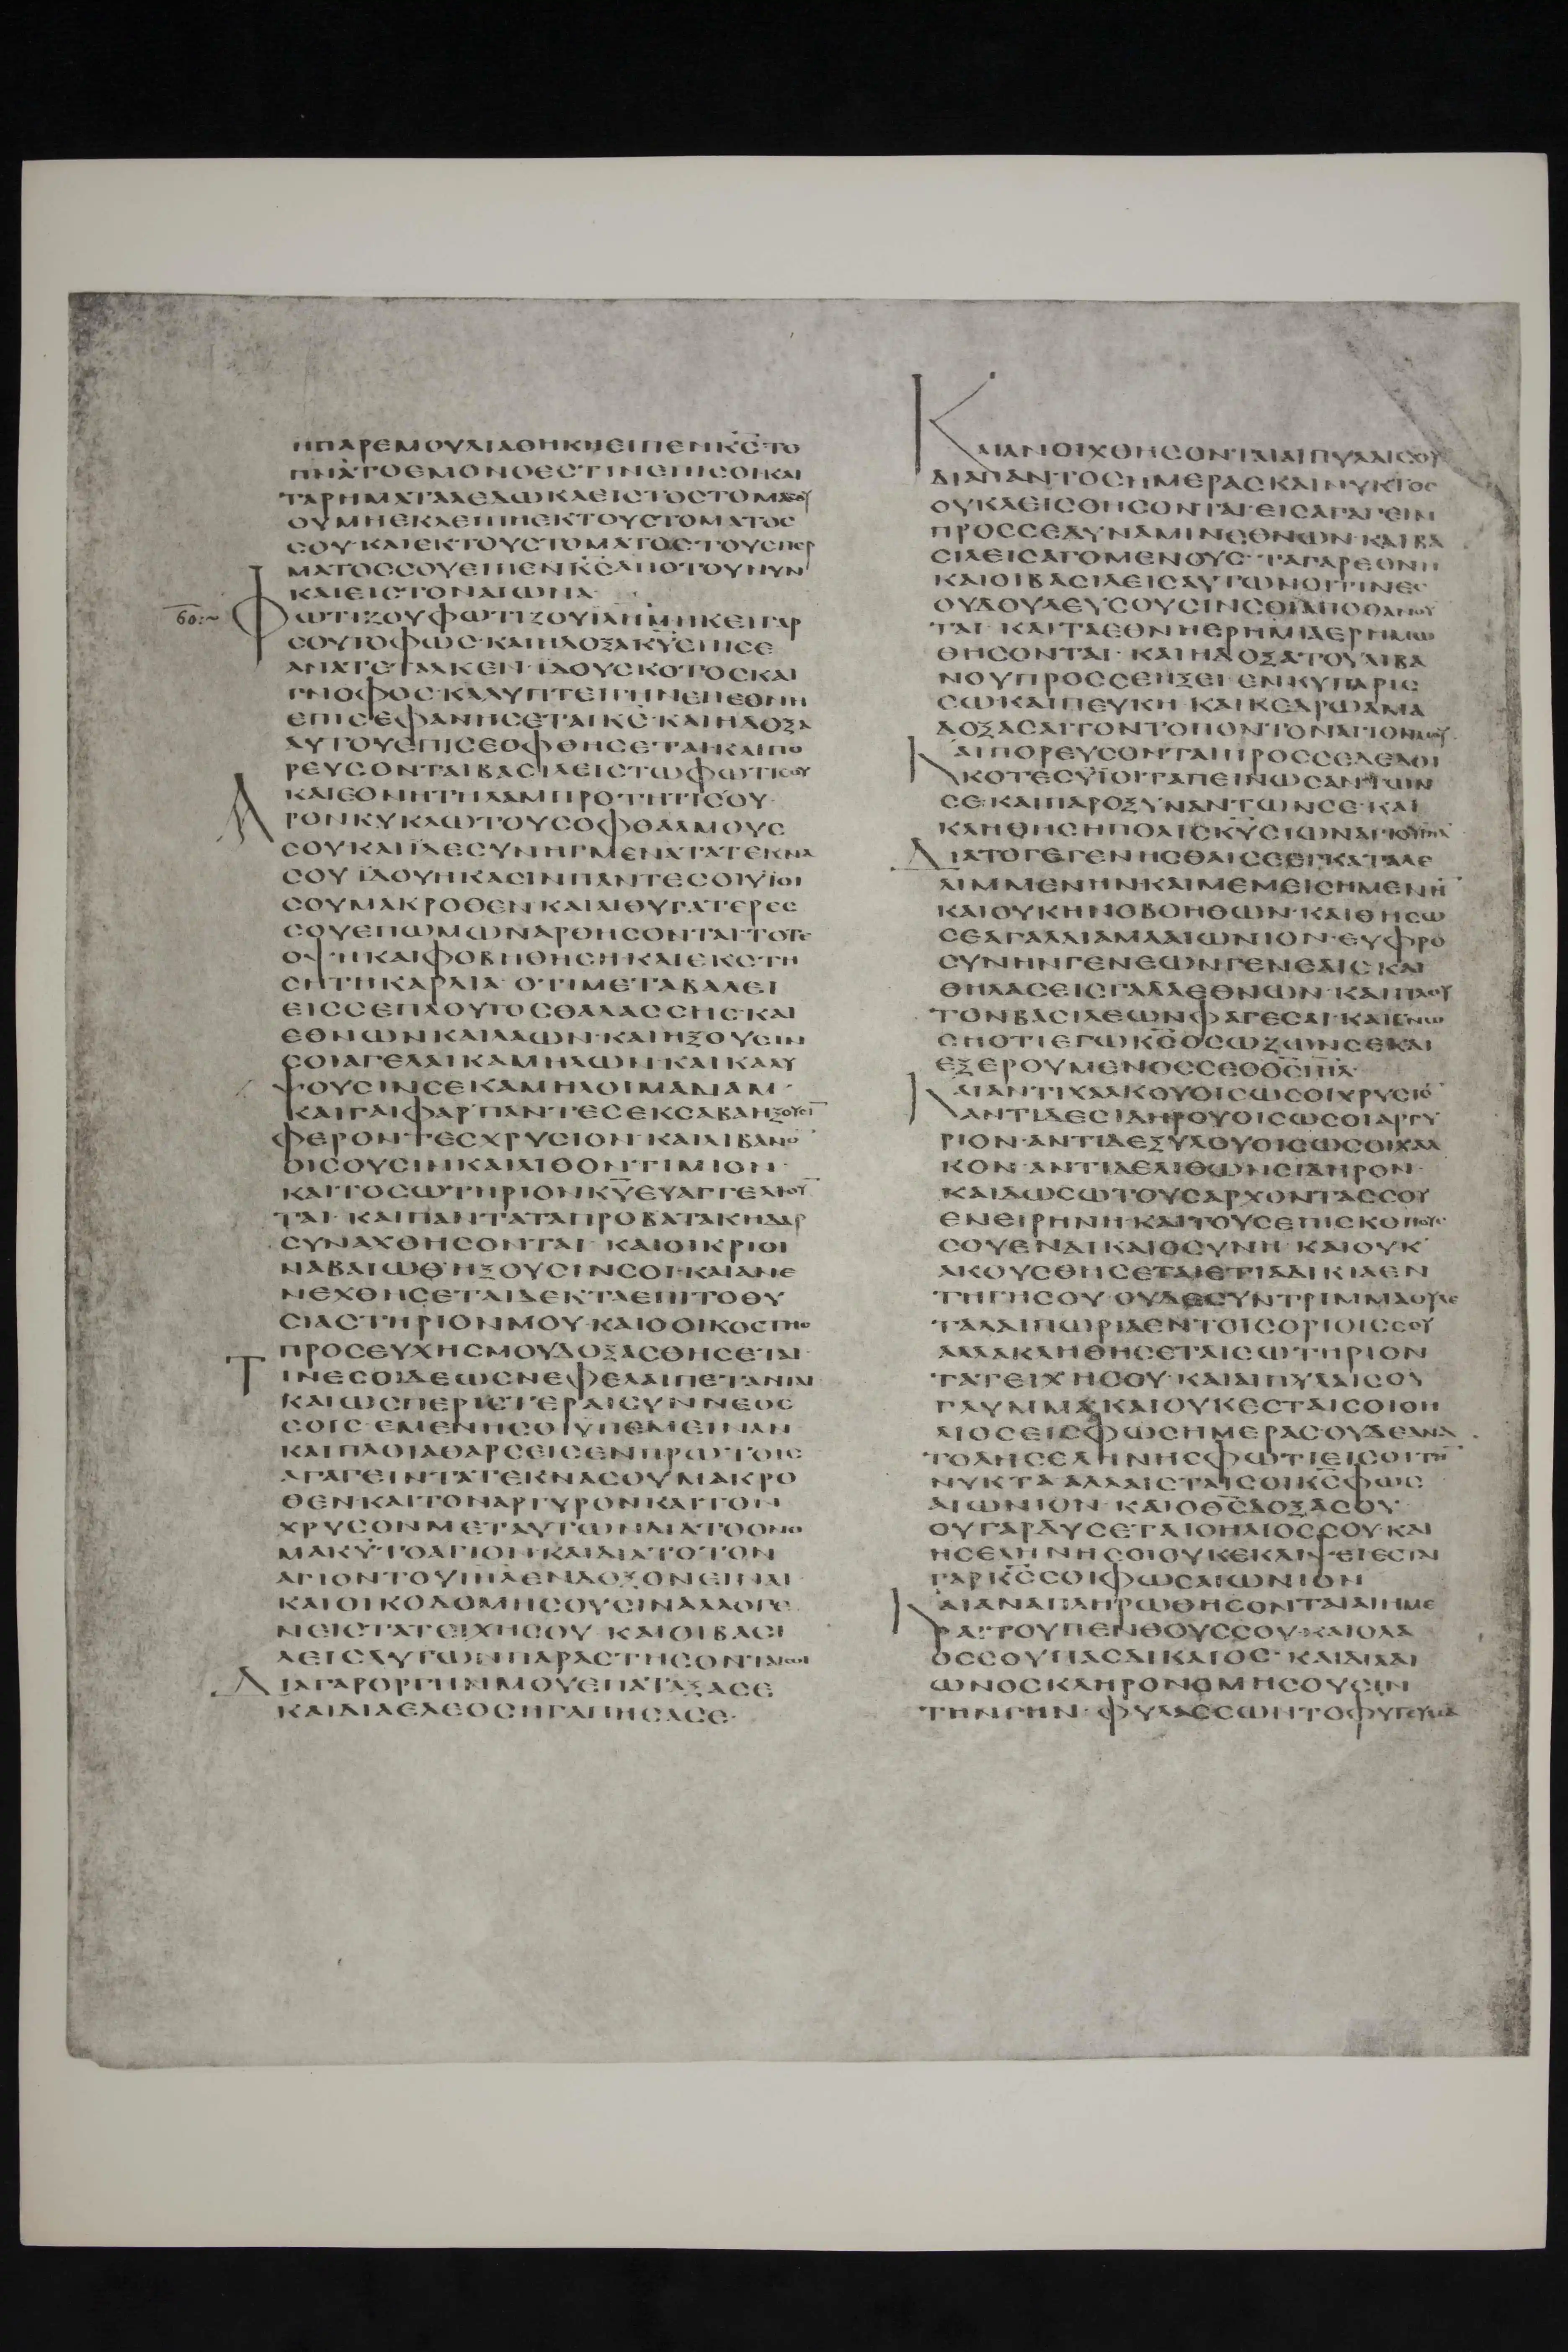 ΗΠΑΡΕΜΟΥΔΙΑΘΗΚΗΕΙΠΕΝΚ̅Σ̅ΤΟ
ΠΝΑΤΟΕΜΟΝΟΕΣΤΙΝΕΠΙΣΟΙΚΑΙ
ΤΑΡΗΜΑΤΑΑΕΔΩΚΑΕΙΣΤΟΣΤΟΜΑΣΟΥ
ΟΥΜΗΕΚΛΕΙΠΗΕΚΤΟΥΣΤΟΜΑΤΟΣ
ΣΟΥ·ΚΑΙΕΚΤΟΥΣΤΟΜΑΤΟΣΤΟΥΣΠΕΡ
ΜΑΤΟΣΣΟΥΕΙΠΕΝΚ̅Σ̅ΑΠΟΤΟΥΝΥΝ
ΚΑΙΕΙΣΤΟΝΑΙΩΝΑ·
60:~
ΦΩΤΙΖΟΥΦΩΤΙΖΟΥΙΛΗΜΗΚΕΙΓΑΡ
ΣΟΥΤΟΦΩΣ·ΚΑΙΗΔΟΞΑΚ̅Υ̅ΕΠΙΣΕ
ΑΝΑΤΕΤΑΛΚΕΝ·ΪΔΟΥΣΚΟΤΟΣΚΑΙ
ΓΝΟΦΟΣ·ΚΑΛΥΠΤΕΙΓΗΝΕΠΕΘΝΗ
ΕΠΙΣΕΦΑΝΗΣΕΤΑΙΚ̅Σ̅·ΚΑΙΗΔΟΞΑ
ΑΥΤΟΥΕΠΙΣΕΟΦΘΗΣΕΤΑΙ·ΚΑΙΠΟ
ΡΕΥΣΟΝΤΑΙΒΑΣΙΛΕΙΣΤΩΦΩΤΙΣΟΥ
ΚΑΙΕΘΝΗΤΗΛΑΜΠΡΟΤΗΤΙΣΟΥ·
ΑΡΟΝΚΥΚΛΩΤΟΥΣΟΦΘΑΛΜΟΥΣ
ΣΟΥΚΑΙΪΔΕΣΥΝΗΓΜΕΝΑΤΑΤΕΚΝΑ
ΣΟΥ·ΪΔΟΥΗΚΑΣΙΝΠΑΝΤΕΣΟΙΥΪΟΙ
ΣΟΥΜΑΚΡΟΘΕΝ·ΚΑΙΑΙΘΥΓΑΤΕΡΕΣ
ΣΟΥΕΠΩΜΩΝΑΡΘΗΣΟΝΤΑΙ·ΤΟΤΕ
ΟΨΗΚΑΙΦΟΒΗΘΗΣΗ·ΚΑΙΕΚΣΤΗ
ΣΗΤΗΚΑΡΔΙΑ·ΟΤΙΜΕΤΑΒΑΛΕΙ
ΕΙΣΣΕΠΛΟΥΤΟΣΘΑΛΑΣΣΗΣ·ΚΑΙ
ΕΘΝΩΝΚΑΙΛΑΩΝ·ΚΑΙΗΞΟΥΣΙΝ
ΣΟΙΑΓΕΛΑΙΚΑΜΗΛΩΝ·ΚΑΙΚΑΛΥ
ΨΟΥΣΙΝΣΕΚΑΜΗΛΟΙΜΑΔΙΑΜ·
ΚΑΙΓΑΙΦΑΡ·ΠΑΝΤΕΣΕΚΣΑΒΑΗΞΟΥΣΙ̅
ΦΕΡΟΝΤΕΣΧΡΥΣΙΟΝ·ΚΑΙΛΙΒΑΝΟ̅
ΟΙΣΟΥΣΙΝΚΑΙΛΙΘΟΝΤΙΜΙΟΝ·
ΚΑΙΤΟΣΩΤΗΡΙΟΝΚ̅Υ̅ΕΥΑΓΓΕΛΙΟΥ̅
ΤΑΙ·ΚΑΙΠΑΝΤΑΤΑΠΡΟΒΑΤΑΚΗΔΑΡ
ΣΥΝΑΧΘΗΣΟΝΤΑΙ·ΚΑΙΟΙΚΡΙΟΙ
ΝΑΒΑΙΩΘΗΞΟΥΣΙΝΣΟΙ·ΚΑΙΑΝΕ
ΝΕΧΘΗΣΕΤΑΙΔΕΚΤΑΕΠΙΤΟΘΥ
ΣΙΑΣΤΗΡΙΟΝΜΟΥ·ΚΑΙΟΟΙΚΟΣΤΗΣ
ΠΡΟΣΕΥΧΗΣΜΟΥΔΟΞΑΣΘΗΣΕΤΑΙ·
ΤΙΝΕΣΟΙΔΕΩΣΝΕΦΕΛΑΙΠΕΤΑΝΤΑΙ
ΚΑΙΩΣΠΕΡΙΣΤΕΡΑΙΣΥΝΝΕΟΣ
ΣΟΙΣ·ΕΜΕΝΗΣΟΙΥΠΕΜΕΙΝΑΝ
ΚΑΙΠΛΟΙΑΘΑΡΣΕΙΣΕΝΠΡΩΤΟΙΣ
ΑΓΑΓΕΙΝΤΑΤΕΚΝΑΣΟΥΜΑΚΡΟ
ΘΕΝΚΑΙΤΟΝΑΡΓΥΡΟΝΚΑΙΤΟΝ
ΧΡΥΣΟΝΜΕΤΑΥΤΩΝΔΙΑΤΟΟΝΟ
ΜΑΚ̅Υ̅ΤΟΑΓΙΟΝ·ΚΑΙΔΙΑΤΟΤΟΝ
ΑΓΙΟΝΤΟΥΙΗΛΕΝΔΟΞΟΝΕΙΝΑΙ·
ΚΑΙΟΙΚΟΔΟΜΗΣΟΥΣΙΝΑΛΛΟΓΕ
ΝΕΙΣΤΑΤΕΙΧΗΣΟΥ·ΚΑΙΟΙΒΑΣΙ
ΛΕΙΣΑΥΤΩΝΠΑΡΑΣΤΗΣΟΝΤΑΙΣΟΙ
ΔΙΑΓΑΡΟΡΓΗΝΜΟΥΕΠΑΤΑΞΑΣΕ
ΚΑΙΔΙΑΕΛΕΟΣΗΓΑΠΗΣΑΣΕ·
ΚΑΙΑΝΟΙΧΘΗΣΟΝΤΑΙΑΙΠΥΛΑΙΣΟΥ
ΔΙΑΠΑΝΤΟΣΗΜΕΡΑΣΚΑΙΝΥΚΤΟΣ
ΟΥΚΛΕΙΣΘΗΣΟΝΤΑΙ·ΕΙΣΑΓΑΓΕΙΝ
ΠΡΟΣΣΕΔΥΝΑΜΙΝΕΘΝΩΝ·ΚΑΙΒΑ
ΣΙΛΕΙΣΑΓΟΜΕΝΟΥΣ·ΤΑΓΑΡΕΘΝΗ
ΚΑΙΟΙΒΑΣΙΛΕΙΣΑΥΤΩΝΟΙΤΙΝΕΣ
ΟΥΔΟΥΛΕΥΣΟΥΣΙΝΣΟΙΑΠΟΘΑΝΟΥ
ΤΑΙ·ΚΑΙΤΑΕΘΝΗΕΡΗΜΙΑΕΡΗΜΩ
ΘΗΣΟΝΤΑΙ·ΚΑΙΗΔΟΞΑΤΟΥΛΙΒΑ
ΝΟΥΠΡΟΣΣΕΗΞΕΙ·ΕΝΚΥΠΑΡΙΣ
ΣΩΚΑΙΠΕΥΚΗ·ΚΑΙΚΕΔΡΩΑΜΑ
ΔΟΞΑΣΑΙΤΟΝΤΟΠΟΝΤΟΝΑΓΙΟΝΜΟΥ·
ΚΑΙΠΟΡΕΥΣΟΝΤΑΙΠΡΟΣΣΕΔΕΔΟΙ
ΚΟΤΕΣΥΪΟΙΤΑΠΕΙΝΩΣΑΝΤΩΝ
ΣΕ·ΚΑΙΠΑΡΟΞΥΝΑΝΤΩΝΣΕ·ΚΑΙ
ΚΛΗΘΗΣΗΠΟΛΙΣΚ̅Υ̅ΣΙΩΝΑΓΙΟΥΙΗΛ
ΔΙΑΤΟΓΕΓΕΝΗΣΘΑΙΣΕΕΓΚΑΤΑΛΕ
ΛΙΜΜΕΝΗΝΚΑΙΜΕΜΕΙΣΗΜΕΝΗ̅
ΚΑΙΟΥΚΗΝΟΒΟΗΘΩΝ·ΚΑΙΘΗΣΩ
ΣΕΑΓΑΛΛΙΑΜΑΑΙΩΝΙΟΝ·ΕΥΦΡΟ
ΣΥΝΗΝΓΕΝΕΩΝΓΕΝΕΑΙΣ·ΚΑΙ
ΘΗΛΑΣΕΙΣΓΑΛΑΕΘΝΩΝ·ΚΑΙΠΛΟΥ
ΤΟΝΒΑΣΙΛΕΩΝΦΑΓΕΣΑΙ·ΚΑΙΓΝΩ
ΣΗΟΤΙΕΓΩΚ̅Σ̅ΟΣΩΖΩΝΣΕΚΑΙ
ΕΞΕΡΟΥΜΕΝΟΣΣΕΟΘ̅Σ̅ΙΗΛ·
ΚΑΙΑΝΤΙΧΑΛΚΟΥΟΙΣΩΣΟΙΧΡΥΣΙΟ̅
ΑΝΤΙΔΕΣΙΔΗΡΟΥΟΙΣΩΣΟΙΑΡΓΥ
ΡΙΟΝ·ΑΝΤΙΔΕΞΥΛΟΥΟΙΣΩΣΟΙΧΑΛ
ΚΟΝ·ΑΝΤΙΔΕΛΙΘΩΝΣΙΔΗΡΟΝ·
ΚΑΙΔΩΣΩΤΟΥΣΑΡΧΟΝΤΑΣΣΟΥ
ΕΝΕΙΡΗΝΗ·ΚΑΙΤΟΥΣΕΠΙΣΚΟΠΟΥΣ
ΣΟΥΕΝΔΙΚΑΙΟΣΥΝΗ·ΚΑΙΟΥΚ
ΑΚΟΥΣΘΗΣΕΤΑΙΕΤΙΑΔΙΚΙΑΕΝ
ΤΗΓΗΣΟΥ·ΟΥΔΕΣΥΝΤΡΙΜΜΑΟΥΔΕ
ΤΑΛΑΙΠΩΡΙΑΕΝΤΟΙΣΟΡΙΟΙΣΣΟΥ
ΑΛΛΑΚΛΗΘΗΣΕΤΑΙΣΩΤΗΡΙΟΝ
ΤΑΤΕΙΧΗΣΟΥ·ΚΑΙΑΙΠΥΛΑΙΣΟΥ
ΓΛΥΜΜΑ·ΚΑΙΟΥΚΕΣΤΑΙΣΟΙΟΗ
ΛΙΟΣΕΙΣΦΩΣΗΜΕΡΑΣΟΥΔΕΑΝΑ
ΤΟΛΗΣΕΛΗΝΗΣΦΩΤΙΕΙΣΟΙΤΗ̅
ΝΥΚΤΑ·ΑΛΛΑΕΣΤΑΙΣΟΙΚ̅Σ̅ΦΩΣ
ΑΙΩΝΙΟΝ·ΚΑΙΟΘ̅Σ̅ΔΟΞΑΣΟΥ·
ΟΥΓΑΡΔΥΣΕΤΑΙΟΗΛΙΟΣΣΟΥ·ΚΑΙ
ΗΣΕΛΗΝΗΣΟΙΟΥΚΕΚΛΙΨΕΙΕΣΤΑΙ
ΓΑΡΚ̅Σ̅ΣΟΙΦΩΣΑΙΩΝΙΟΝ
ΚΑΙΑΝΑΠΛΗΡΩΘΗΣΟΝΤΑΙΑΙΗΜΕ
ΡΑΙΤΟΥΠΕΝΘΟΥΣΣΟΥ·ΚΑΙΟΛΑ
ΟΣΣΟΥΠΑΣΔΙΚΑΙΟΣ·ΚΑΙΔΙΑΙ
ΩΝΟΣΚΛΗΡΟΝΟΜΗΣΟΥΣΙΝ
ΤΗΝΓΗΝ·ΦΥΛΑΣΣΩΝΤΟΦΥΤΕΥΜΑ